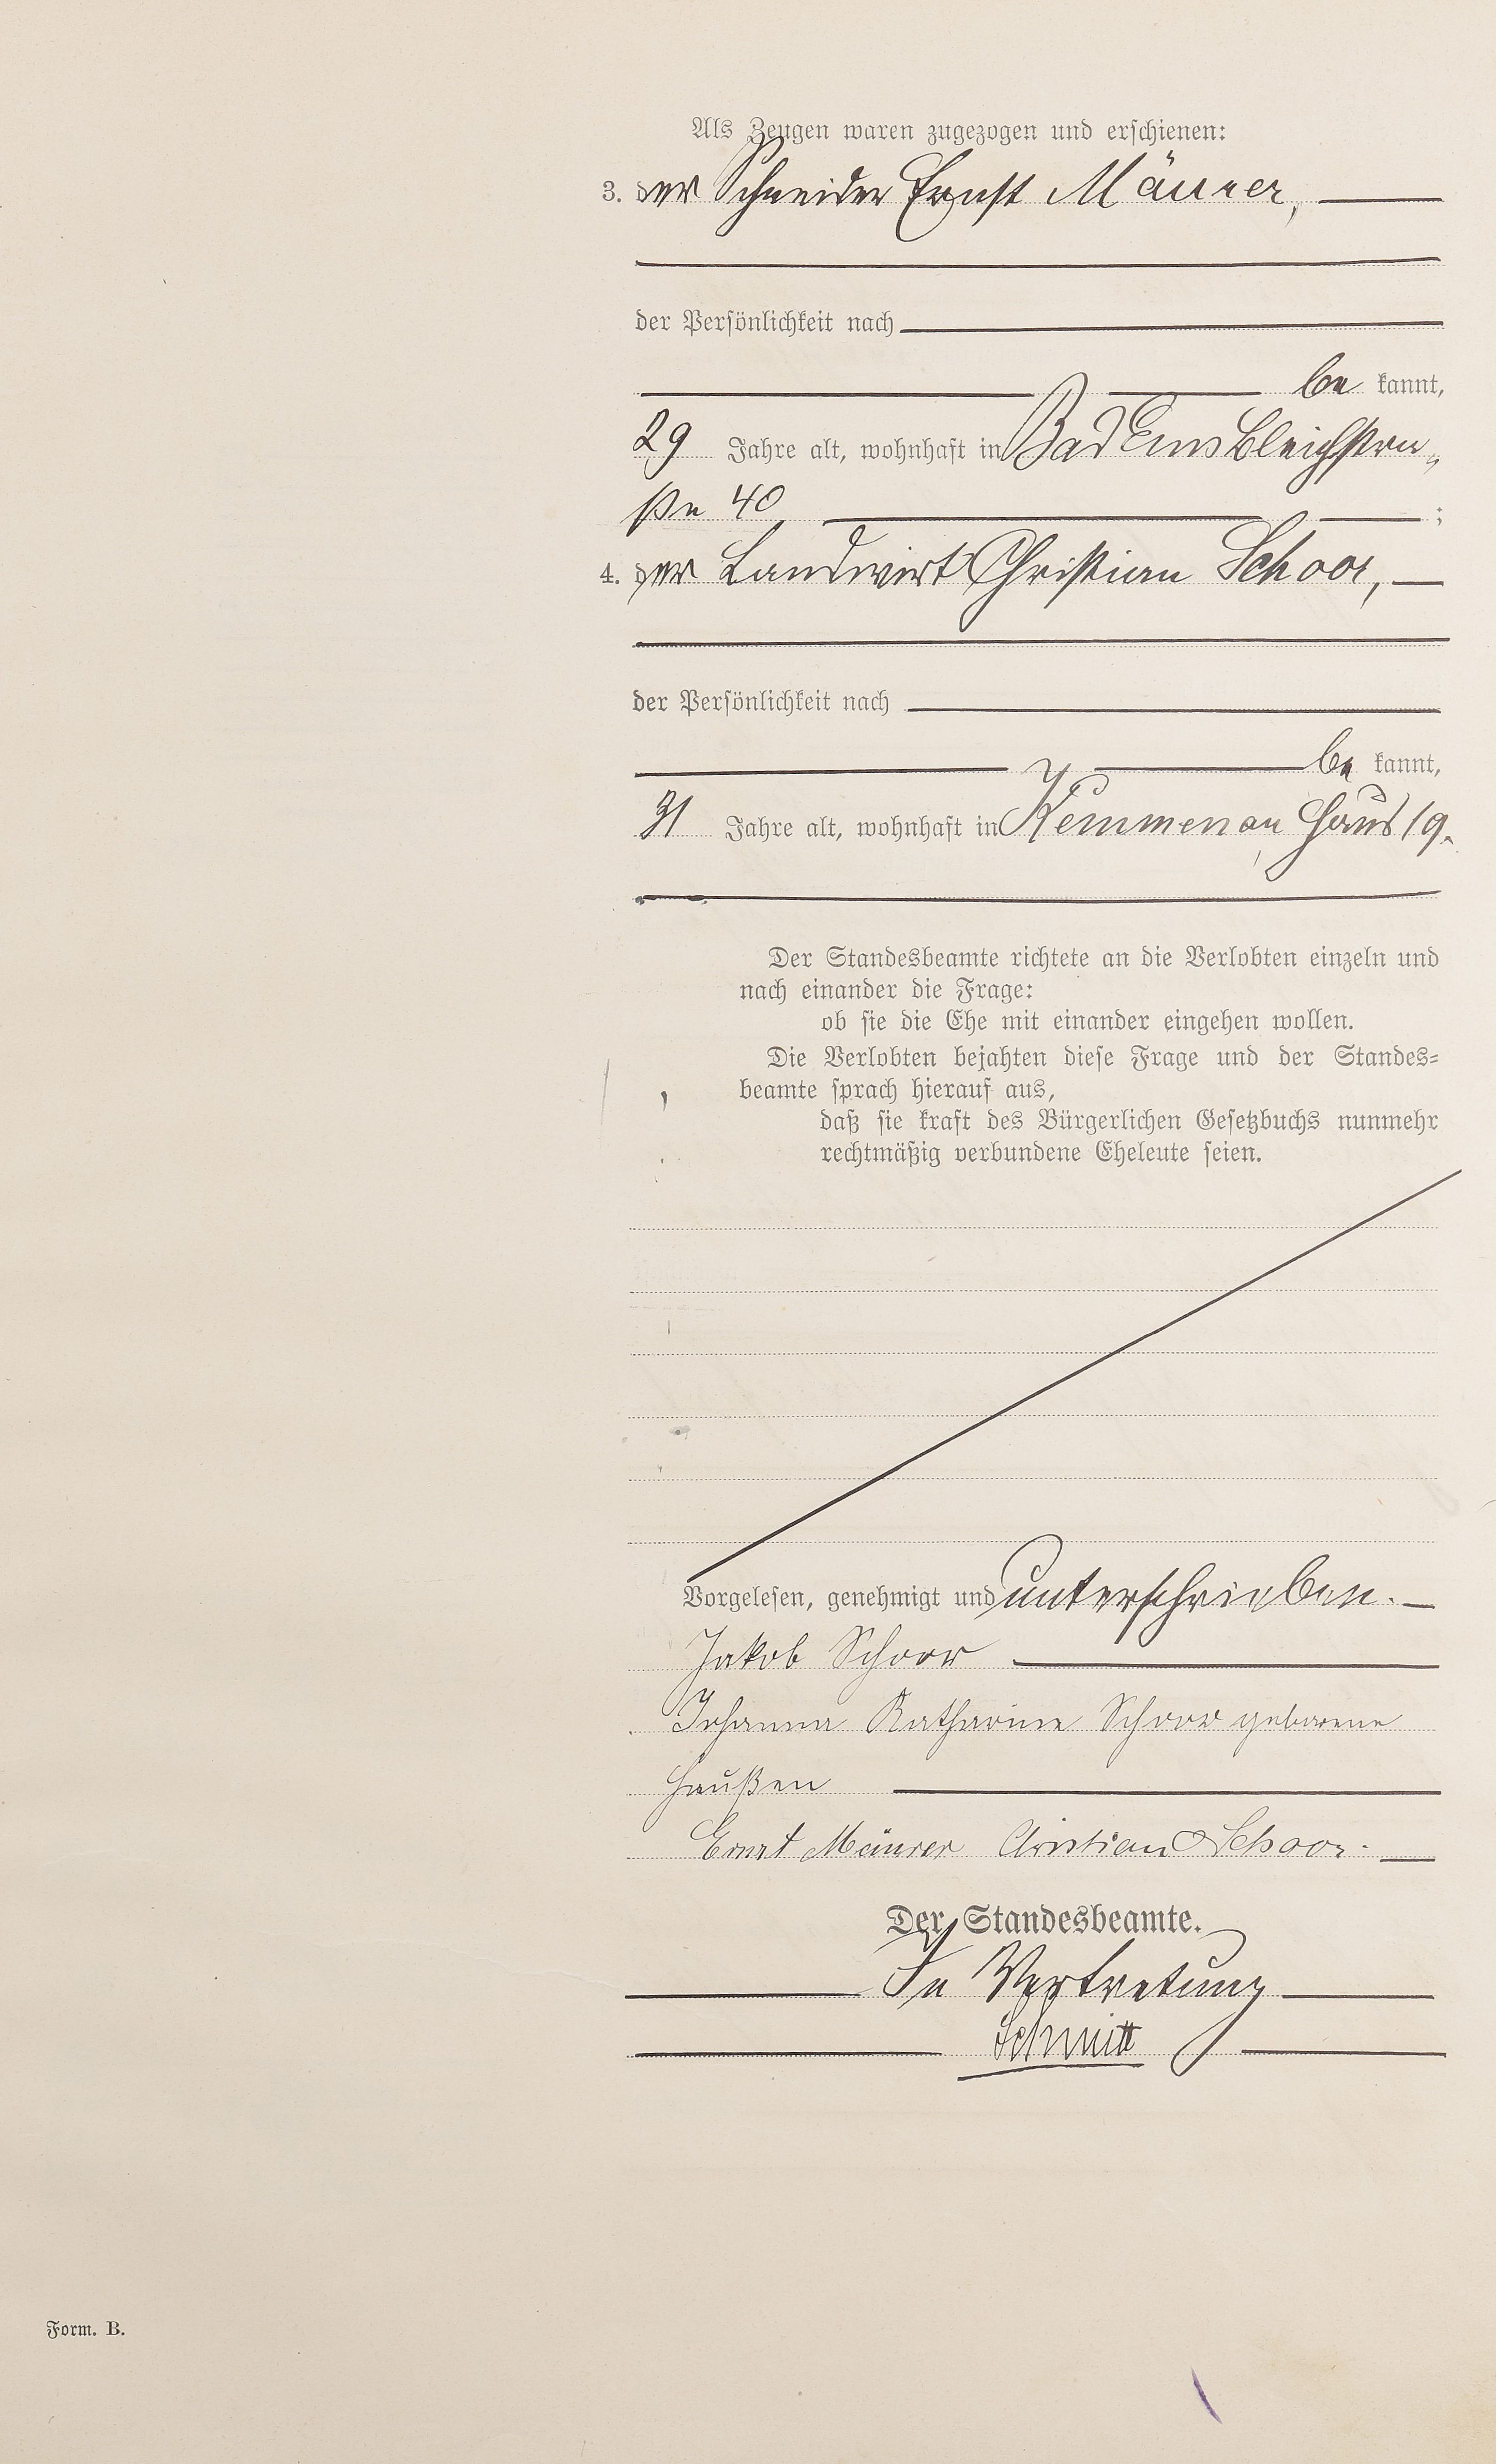 Als Zeugen waren zugezogen und erschienen:
3. der Schneider Ernst Mäurer,
der Persönlichkeit nach
be kannt,
29 Jahre alt, wohnhaft in Bad Ems Bleichstra-
ße 40 ;
4. der Landwirt Christian Schoor,
der Persönlichkeit nach
be kannt,
31 Jahre alt, wohnhaft in Kemmenau, Haus 19.
Der Standesbeamte richtete an die Verlobten einzeln und
nach einander die Frage:
ob sie die Ehe mit einander eingehen wollen.
Die Verlobten bejahten diese Frage und der Standes-
beamte sprach hierauf aus,
daß sie kraft des Bürgerlichen Gesetzbuchs nunmehr
rechtmäßig verbundene Eheleute seien.
Vorgelesen, genehmigt und unterschrieben.
Jakob Schoor
Johanna Katharine Schoor geborene
Haußen
Ernst Mäurer Christian Schoor.
Der Standesbeamte.
In Vertretung
Schmitt
Form. B.